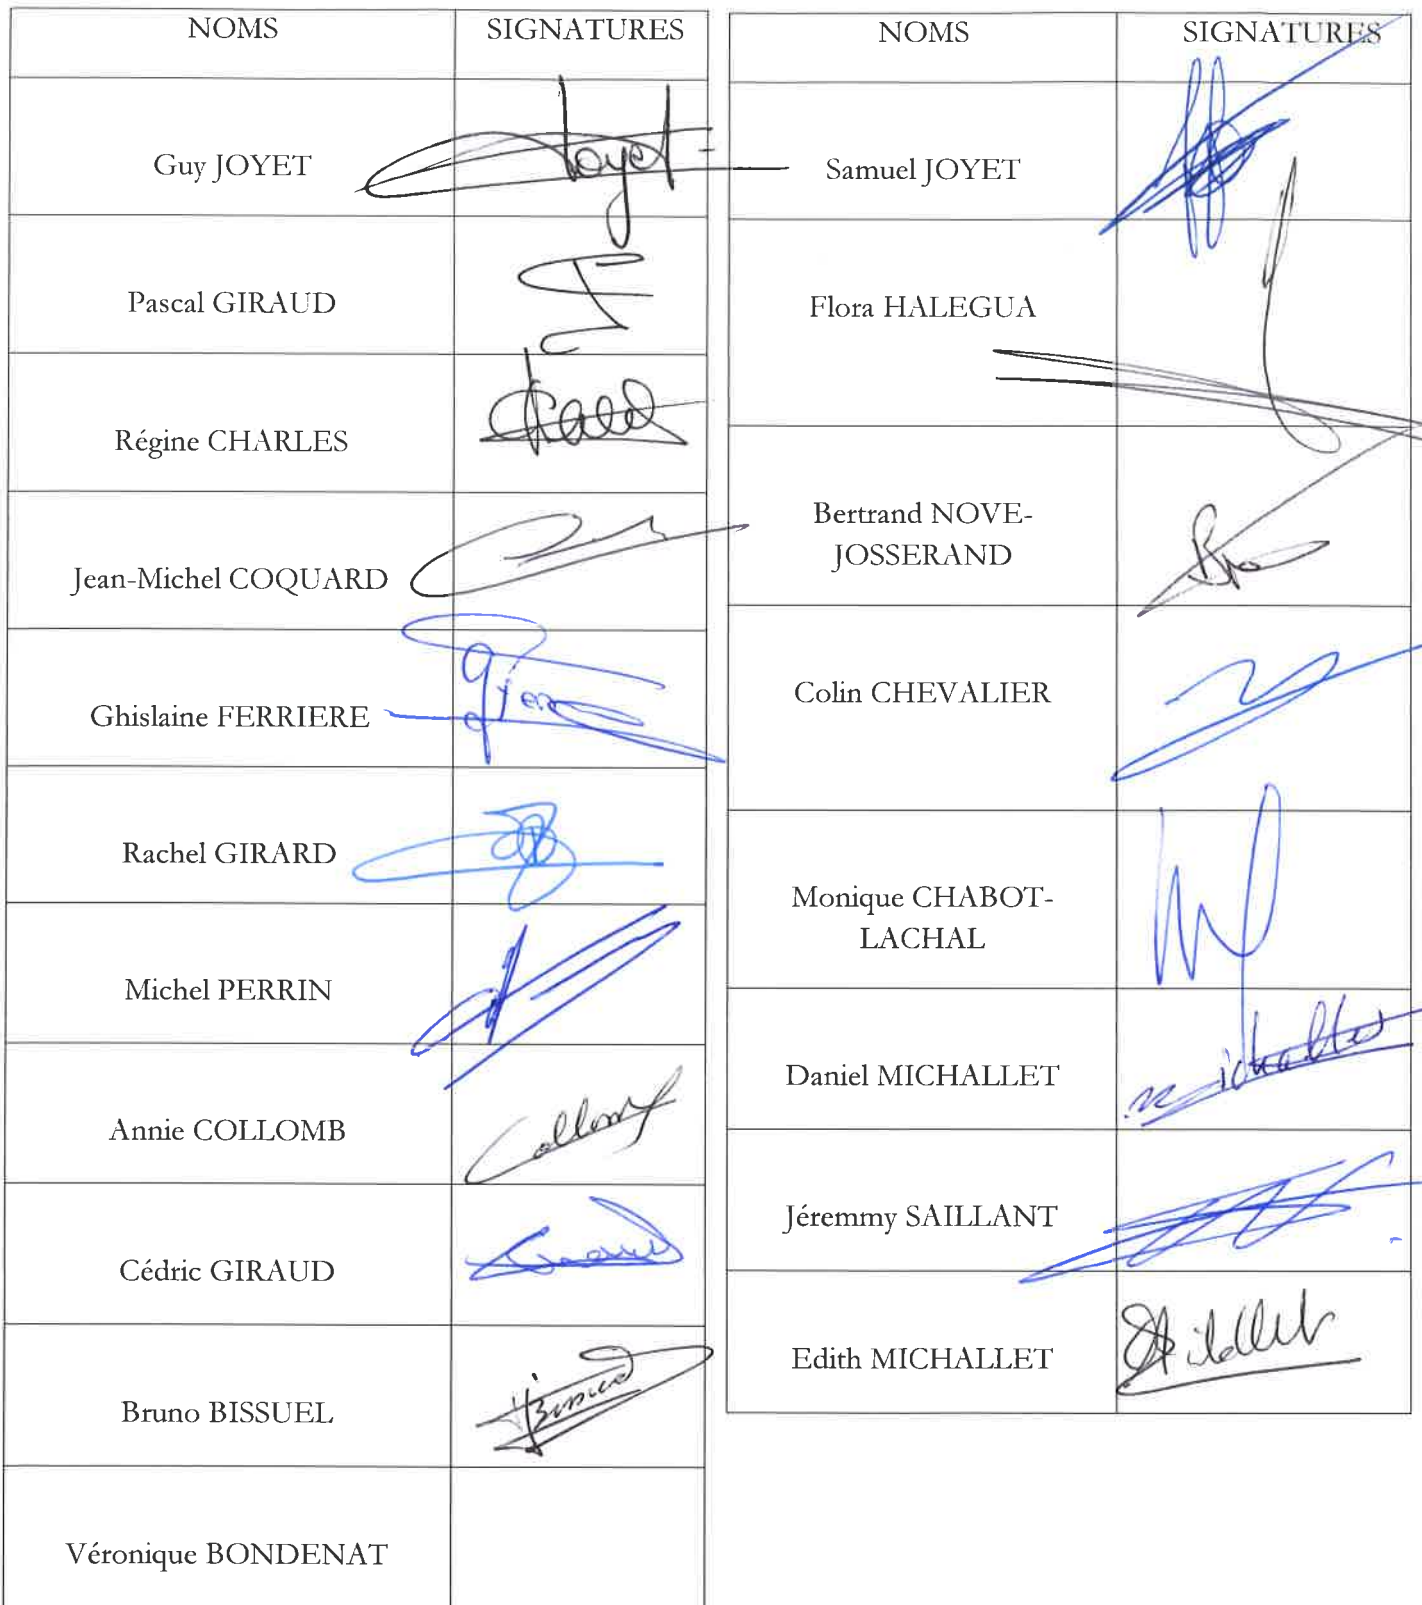 NOMS SIGNATURES
Guy JOYET Joyet
Pascal GIRAUD
Régine CHARLES
Jean-Michel COQUARD
Ghislaine FERRIERE
Rachel GIRARD
Michel PERRIN
Annie COLLOMB Collomb
Cédric GIRAUD
Bruno BISSUEL Bissuel
Véronique BONDENAT
NOMS SIGNATURES
Samuel JOYET
Flora HALEGUA
Bertrand NOVE-
JOSSERAND
Colin CHEVALIER
Monique CHABOT-
LACHAL
Daniel MICHALLET Michallet
Jéremmy SAILLANT
Edith MICHALLET